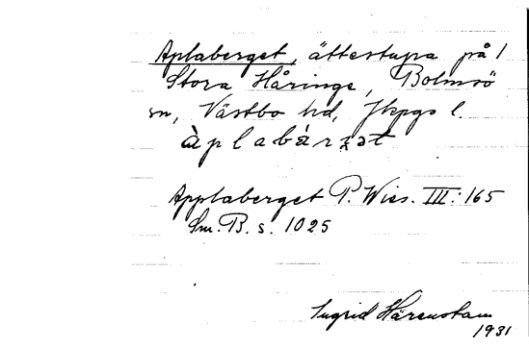 Aplaberget, ättestupa på
Stora Håringe, Bolmsö
sn, Västbo hd, Jkpgs l.
àplabárjət
Applaberget P. Wies. III: 165
Sm. B. s. 1025
Ingrid Härenstam
1931